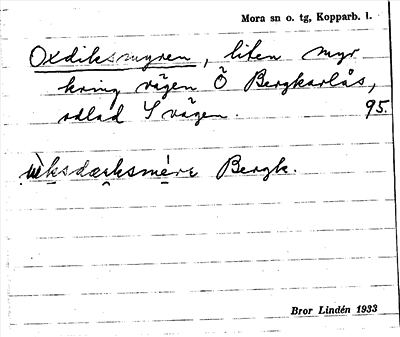 Mora sn o. tg, Kopparb. l.
Oxdiksmyren, liten myr
kring vägen Ö Bergkarlås,
odlad S vägen. 95.
Bergk.
Bror Lindén 1933